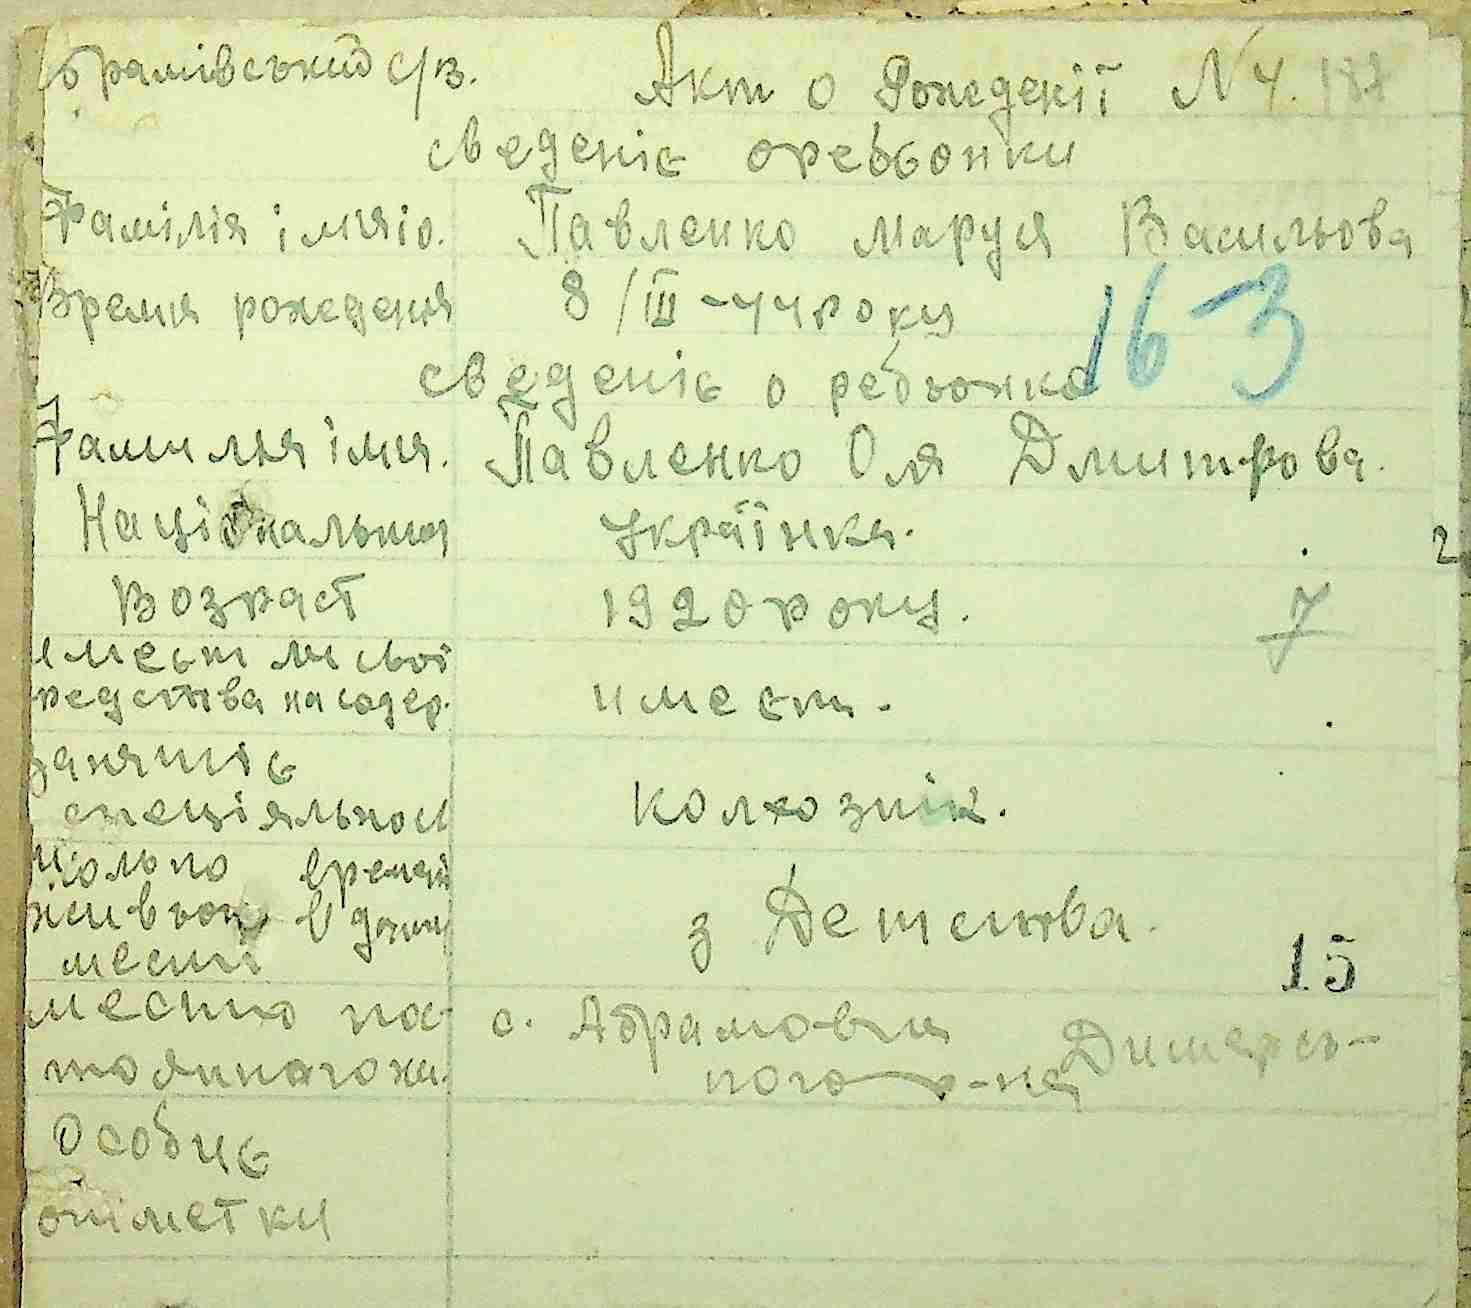 брамівський с/в. Акт о Рожеденії N 4. 188
сведеніє оребьонки
Фамілія і мяіо. Павленко Маруся Васильова
Время рожеденя 8/III-44 року
163
сведеніє о ребьонка
Фамилья імя. Павленко Оля Дмитрова.
Національния українка.
2
Возраст 1920 року.
7
имеет ли свої
редства на содер. имеєт.
занятіє
специяльност колхознік.
время
живьот в даном з Детства.
мести
15
место по- с. Абрамовка Димерсь-
тояинаго жи. кого р-на
Особиє
отметки